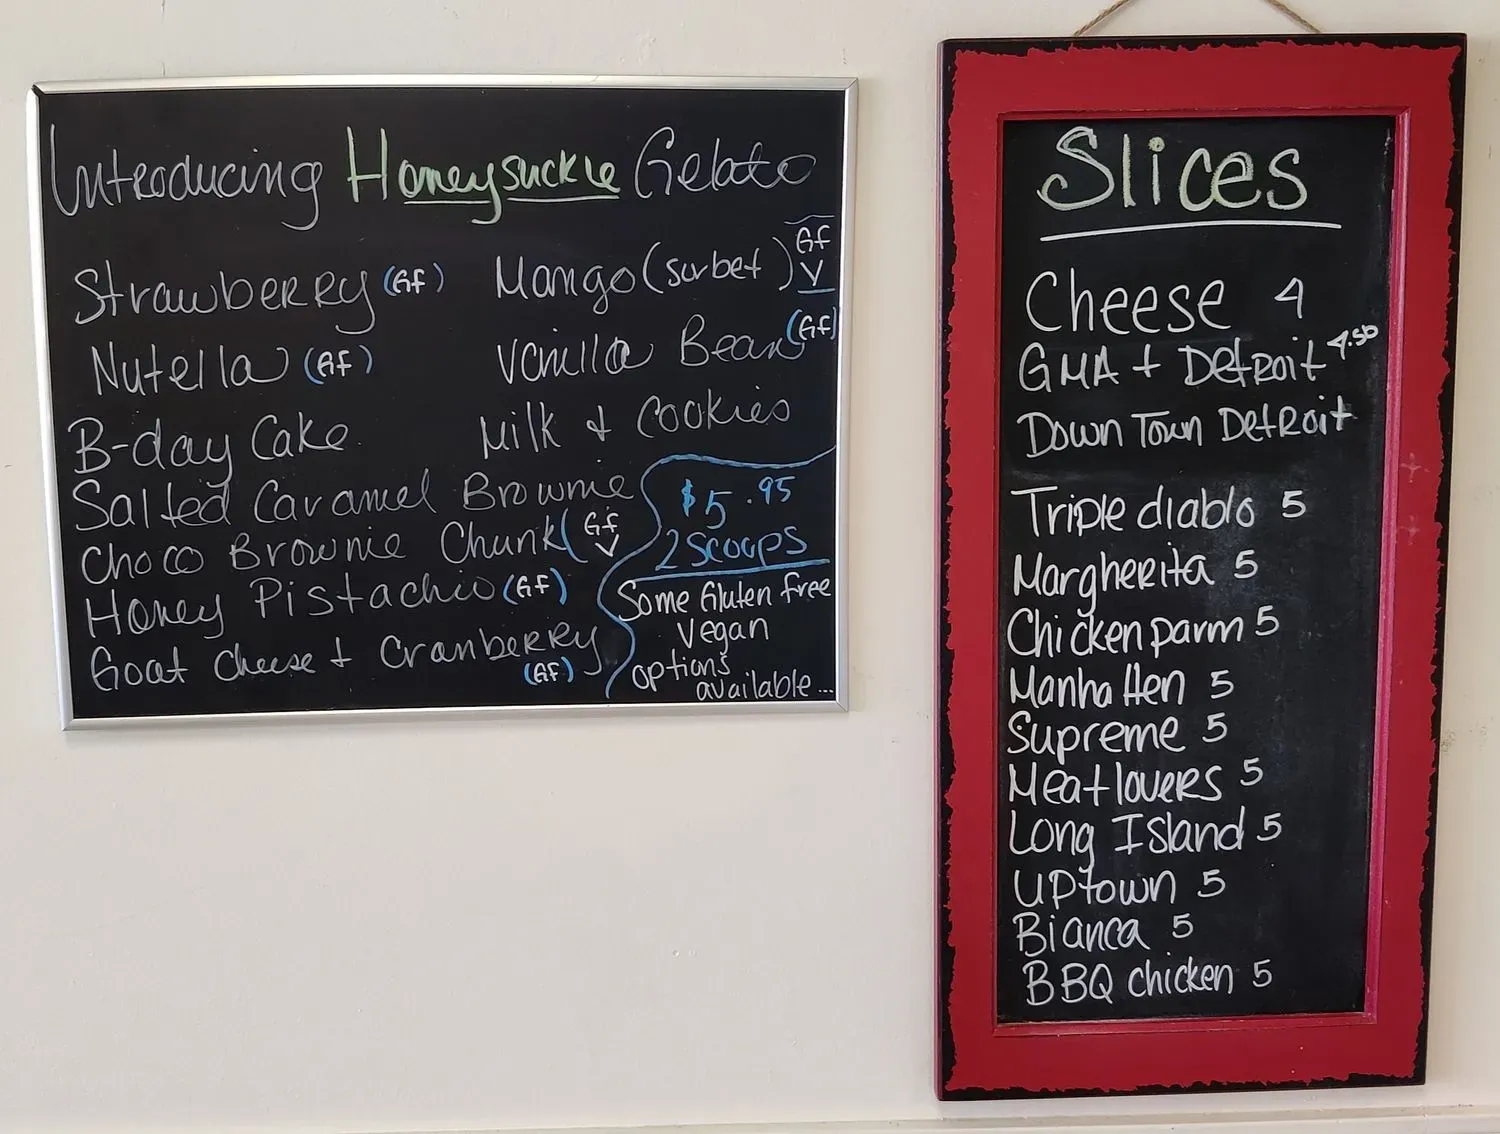 Introducing Honeysuckle Gelato
Strawberry (GF)
Mango (sorbet) GF V
Nutella (GF)
Vanilla Bean (GF)
B-day Cake
Milk + Cookies
Salted Caramel Brownie
Choco Brownie Chunk (GF V
Honey Pistachio (GF)
Goat Cheese + Cranberry
(GF)
$5.95
2 scoops
Some Gluten free
Vegan
options
available...
Slices
Cheese 4
GMA + Detroit 4.50
Down Town Detroit
Triple diablo 5
Margherita 5
Chicken parm 5
Manhatten 5
Supreme 5
Meatlovers 5
Long Island 5
Uptown 5
Bianca 5
BBQ chicken 5